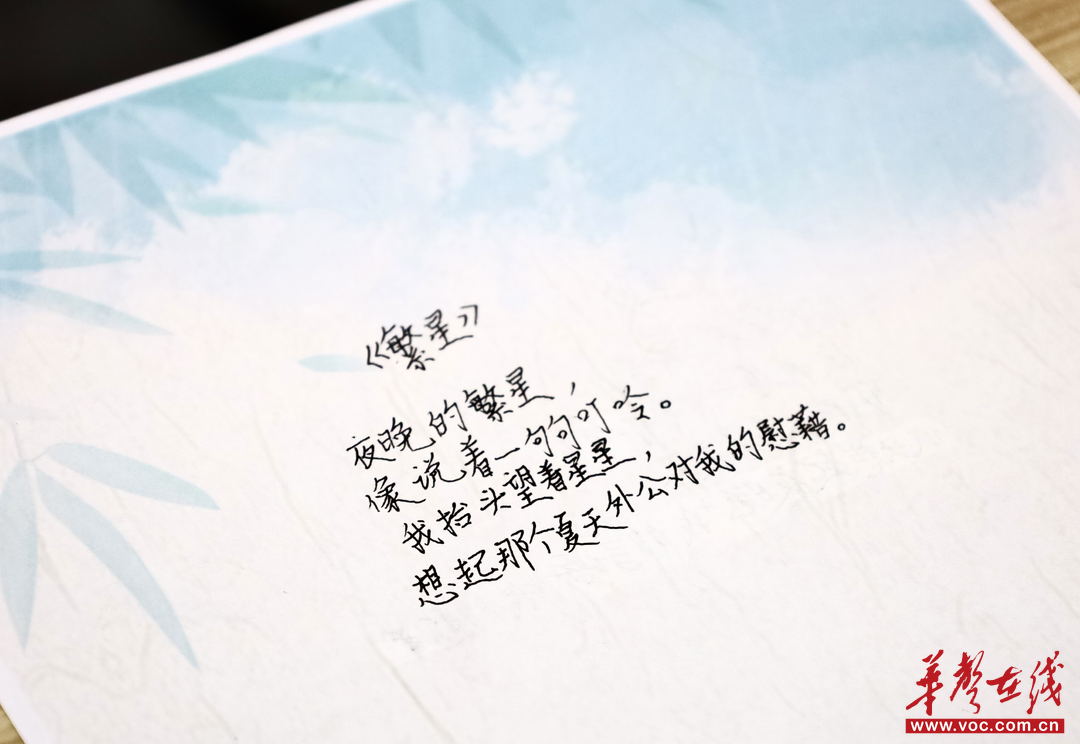 《繁星》
夜晚的繁星，
像说着一句句叮咛。
我抬头望着星星，
想起那个夏天外公对我的慰藉。
华声在线
www.voc.com.cn